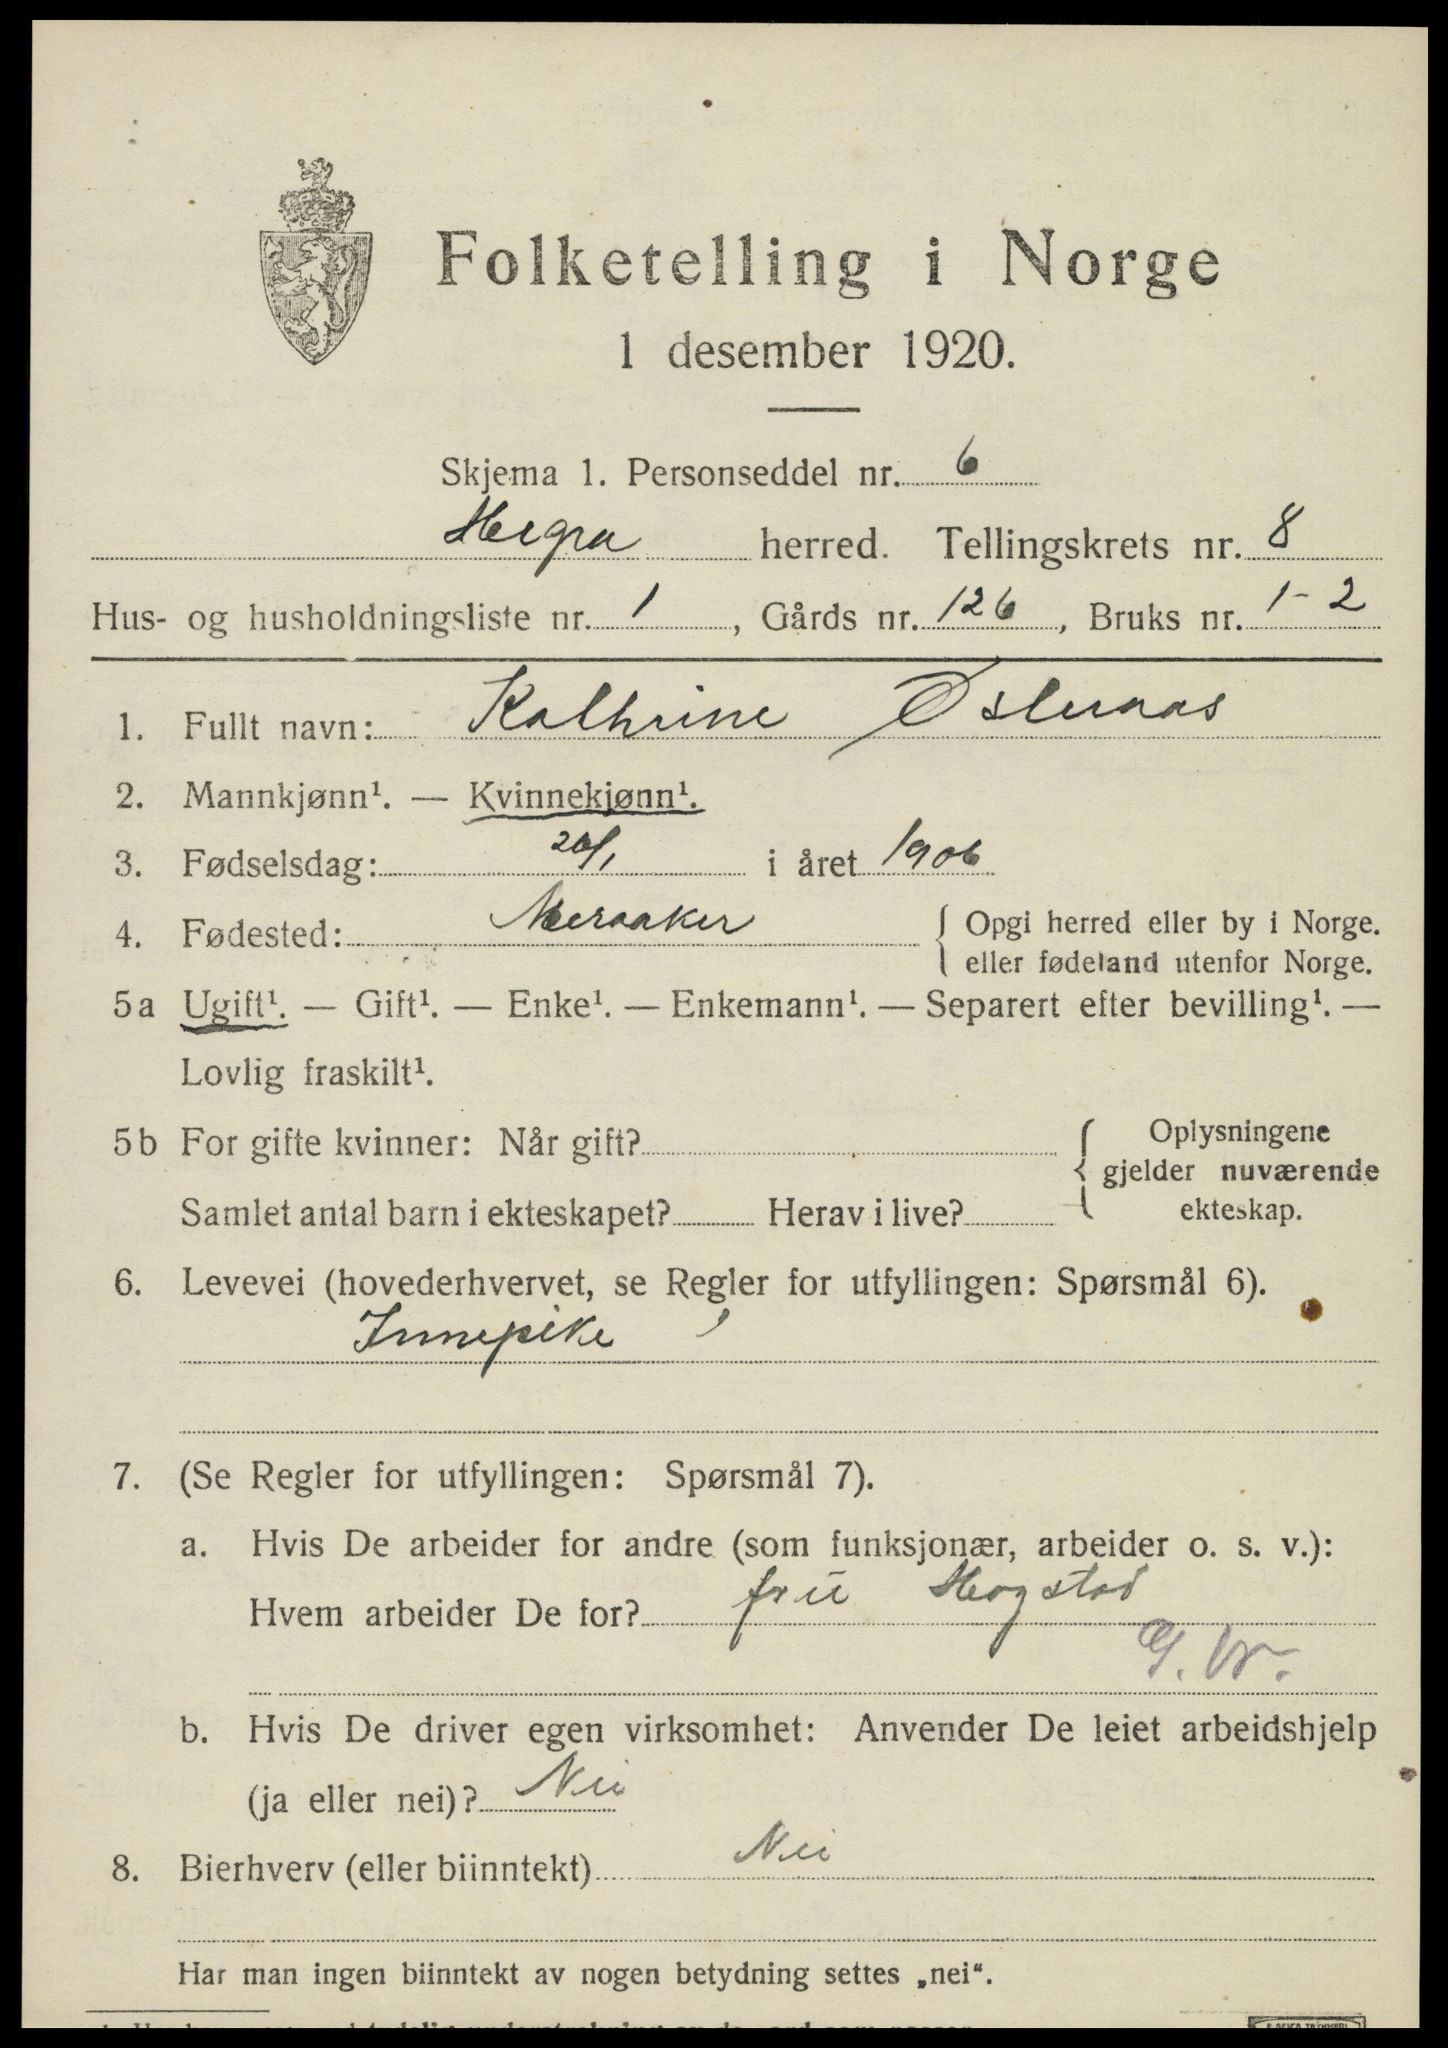 Folketelling i Norge
1 desember 1920.
Skjema 1. Personseddel nr. 6
Hegra herred. Tellingskrets nr. 8
Hus- og husholdningsliste nr. 1, Gårds nr. 126, Bruks nr. 1-2
1. Fullt navn: Kathrine Østeraas
2. Mannkjønn¹. — Kvinnekjønn¹.
3. Fødselsdag: 20/1 i året 1906
4. Fødested: Meraaker { Opgi herred eller by i Norge.
eller fødeland utenfor Norge.
5a Ugift¹. — Gift¹. — Enke¹. — Enkemann¹. — Separert efter bevilling¹. —
Lovlig fraskilt¹.
5b For gifte kvinner: Når gift? { Oplysningene
gjelder nuværende
Samlet antal barn i ekteskapet? Herav i live? ekteskap.
6. Levevei (hovederhvervet, se Regler for utfyllingen: Spørsmål 6).
Innepike
7. (Se Regler for utfyllingen: Spørsmål 7).
a. Hvis De arbeider for andre (som funksjonær, arbeider o. s. v.):
Hvem arbeider De for? fru Hogstad
b. Hvis De driver egen virksomhet: Anvender De leiet arbeidshjelp
(ja eller nei)? Nei
8. Bierhverv (eller biinntekt) Nei
Har man ingen biinntekt av nogen betydning settes „nei“.